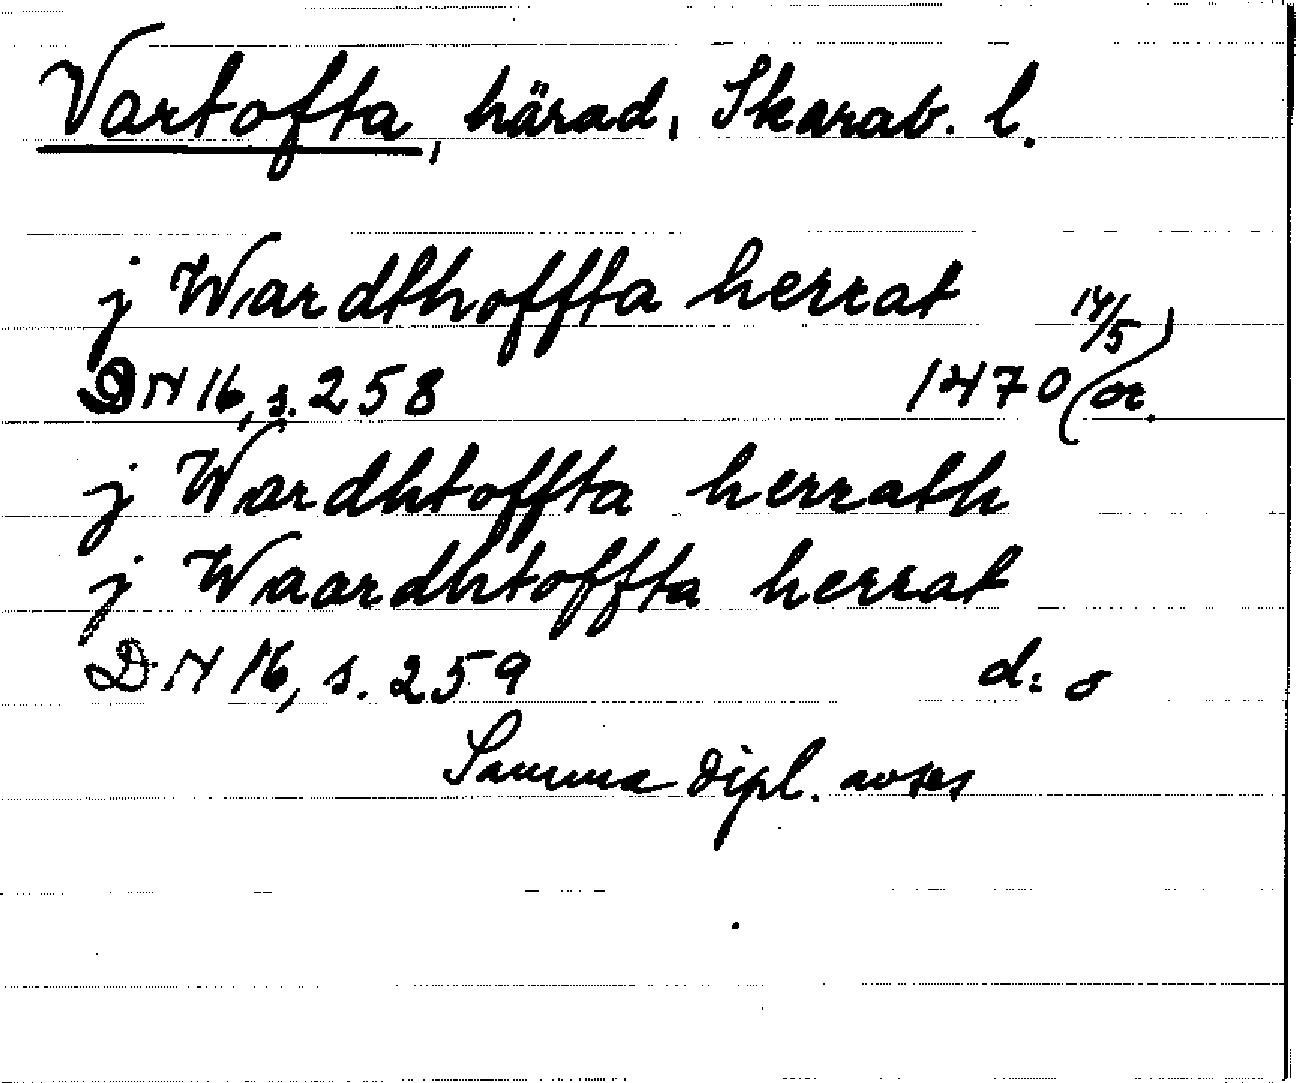 Vartofta, härad, Skarab. l.
j Wardthoffta herrat 14/5
DN 16, s. 258 1470 (or.)
j Wardhtoffta herrath
j Waardhtoffta herrat
DN 16, s. 259 d:o
Samma dipl. avses